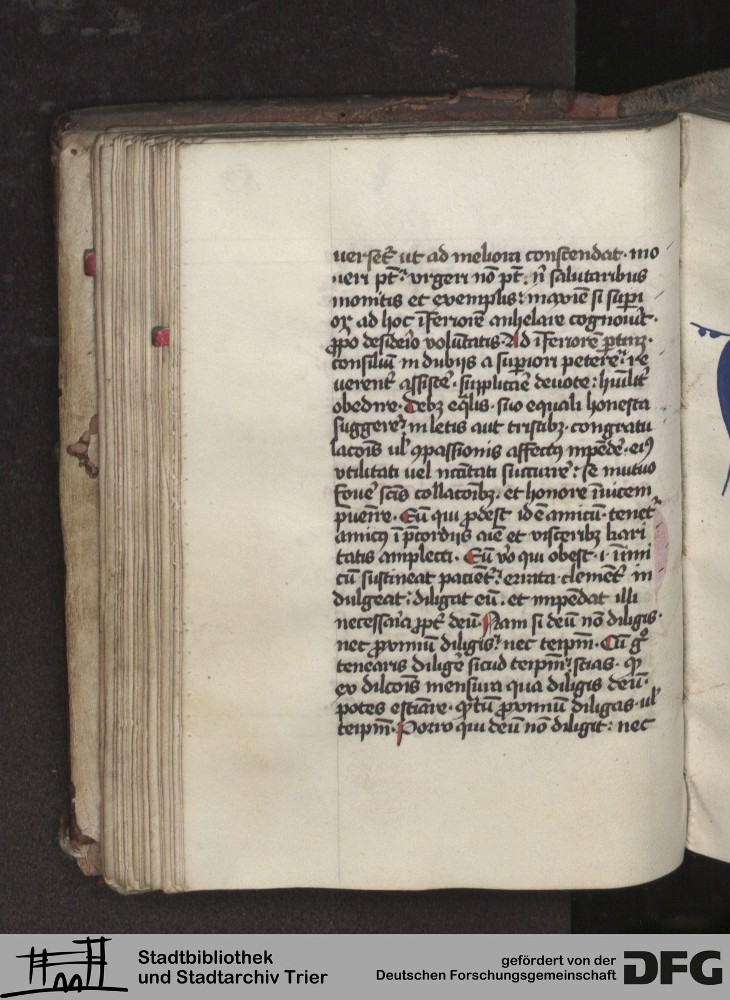 uerset̄ ut ad meliora conscendat· mo
ueri pt̄ʳ vrgeri nō pt̄· n̄ salutaribus
monitis et exemplis: maxīe si supi
or ad hoc īferiorē anhelare cognouit̄·
ꝓpo desiderio volūtatis· Ad īferiorē ꝑtinȝ·
consiliū in dubijs a supiori petere: re
uerent̄ assiste· suppliciē deuote: hūilit̄
obedire· Debȝ eq̄lis· suo equali honesta
suggere: in letis aut tristibȝ· congratu
lacoīs ul ꝯpassionis affectū inpēde· eiꝰ
vtilitati uel nc̄itati succurre: se mutuo
foue sc̄is collacoībȝ· et honore īuicem
p̄uenire· Eū qui ꝓdest idē amicū· tenet
amicꝰ ī p̄cordijs aīe et visceribȝ kari
tatis amplecti· Eū vo qui obest· i· inimi
cū sustineat pacient̄ʳ errata clement̄ in
dulgeat: diligat eū· et inpēdat illi
necessaria ꝓpt̄ deū· Nam si deū nō diligis·
nec ꝓximū diligis: nec teipm̄· Cū gͦ
tenearis dilige sicud teipm̄ʳ scias· ꝙ
ex dilcōis mensura qua diligis deū·
potes estīare· ꝙtū ꝓximū diligas· ul
teipm̄· Porro qui deū nō diligit: nec
Stadtbibliothek
und Stadtarchiv Trier
gefördert von der
Deutschen Forschungsgemeinschaft
DFG